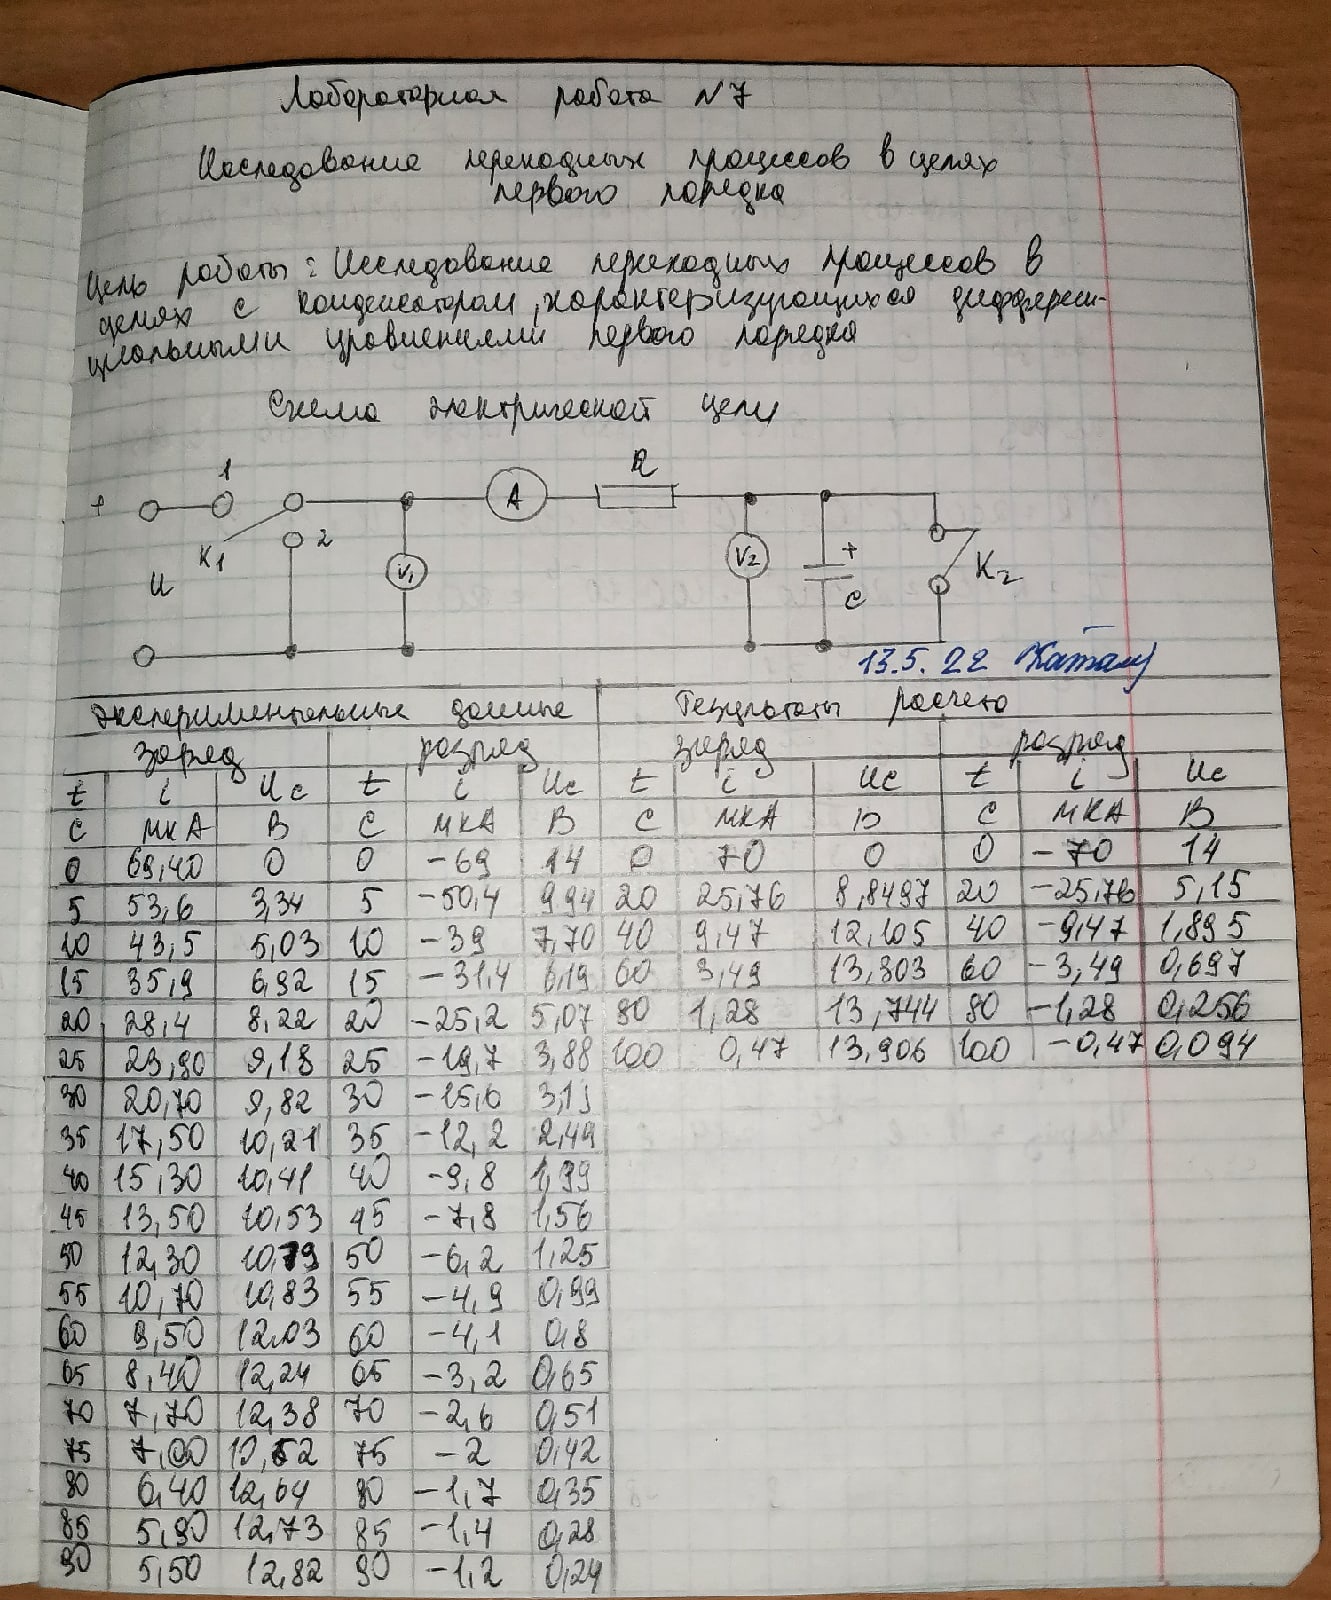 Лабораторная работа N7
Исследование переходных процессов в цепях
первого порядка
Цель работы: Исследование переходных процессов в
цепях с конденсатором, характеризующихся дифферен-
циальными уравнениями первого порядка
Схема электрической цепи
+ 1 A R
K1 2 V1 V2 + K2
U C
13.5.22
Экспериментальные данные Результаты расчета
заряд разряд заряд разряд
t i Uc t i Uc t i Uc t i Uc
С мкА В С мкА В С мкА В С мкА В
0 69,40 0 0 -69 14 0 70 0 0 -70 14
5 53,6 3,34 5 -50,4 9,94 20 25,76 8,8497 20 -25,76 5,15
10 43,5 5,03 10 -39 7,70 40 9,47 12,105 40 -9,47 1,895
15 35,9 6,92 15 -31,4 6,19 60 3,49 13,303 60 -3,49 0,697
20 28,4 8,22 20 -25,2 5,07 80 1,28 13,744 80 -1,28 0,256
25 23,90 9,18 25 -19,7 3,88 100 0,47 13,906 100 -0,47 0,094
30 20,70 9,82 30 -15,6
35 17,50 10,21 35 -12,2 2,49
40 15,30 10,41 40 -9,8 1,99
45 13,50 10,53 45 -7,8 1,56
50 12,30 10,79 50 -6,2 1,25
55 10,70 10,83 55 -4,9 0,99
60 9,50 12.03 60 -4,1 0,8
65 8,40 12,24 65 -3,2 0,65
70 7,70 12,38 70 -2,6 0,51
75 7,00 75 -2 0,42
80 6,40 12,64 80 -1,7 0,35
85 5,90 12,73 85 -1,4 0,28
90 5,50 12,82 90 -1,2 0,24